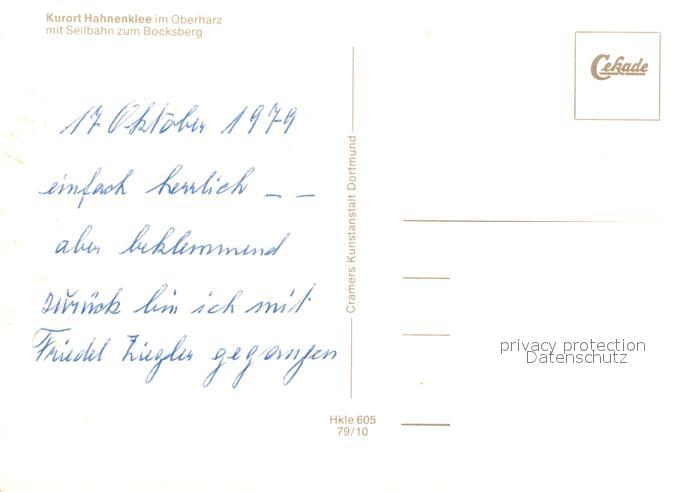 Kurort Hahnenklee im Oberharz
mit Seilbahn zum Bocksberg
Cekade
17 Oktober 1979
einfach herrlich _ _
aber beklemmend
zurück bin ich mit
Friedel Ziegler gegangen
Cramers Kunstanstalt Dortmund
Hkle 605
79/10
privacy protection
Datenschutz